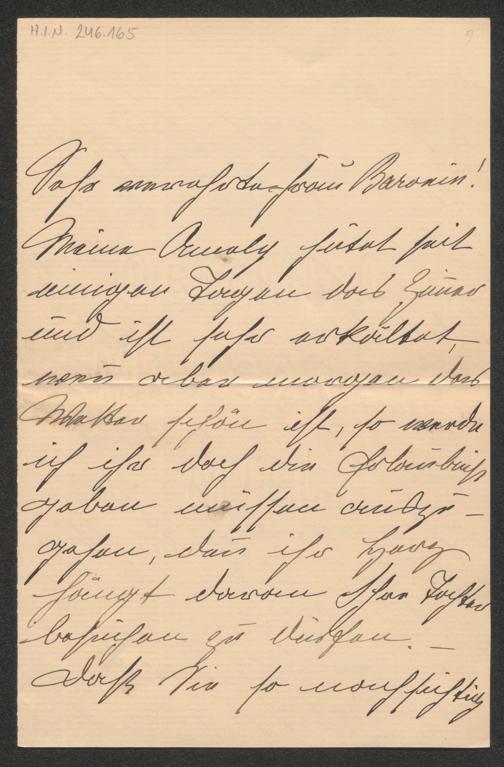 H.I.N. 246.165
9
Sehr verehrte Frau Baronin!
Meine Amely hütet seit
einigen Tagen das Zimer
und ist sehr erkältet,
wen aber morgen das
Wetter schön ist, so werde
ich ihr doch die Erlaubniß
geben müssen auszu-
gehen, den ihr Herz
hängt daran Ihre Tochter
besuchen zu dürfen. —
Daß Sie so nachsichtig